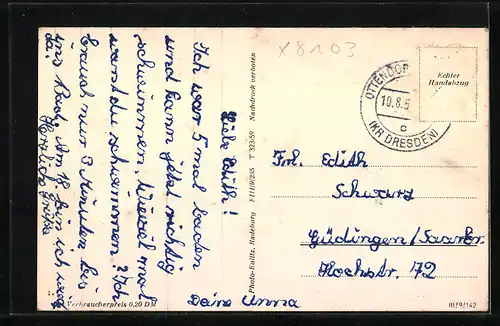 x 8103
Liebe Edith!
Ich war 5 mal baden
und kann jetzt richtig
schwimmen. Wieviel mal
warst du schwimmen? Ich
brauch nur 3 Minuten bis
ins Bad. Am 18. bin ich wied
da.
Herzliche Grüße
Deine Anna
Verbraucherpreis 0,20 DM
Photo-Kailitz, Radeburg F 111/9/235 T 323/59 Nachdruck verboten
Echter
Handabzug
OTTENDORF
10.8.5
c
(KR DRESDEN)
Frl. Edith
Schwarz
Güdingen/Saarbr.
Hochstr. 72
III/9/142